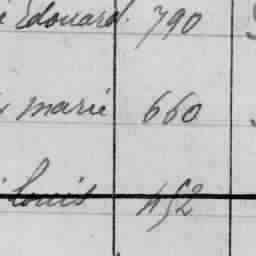 Edouard. 790
Marie 660
Louis 452